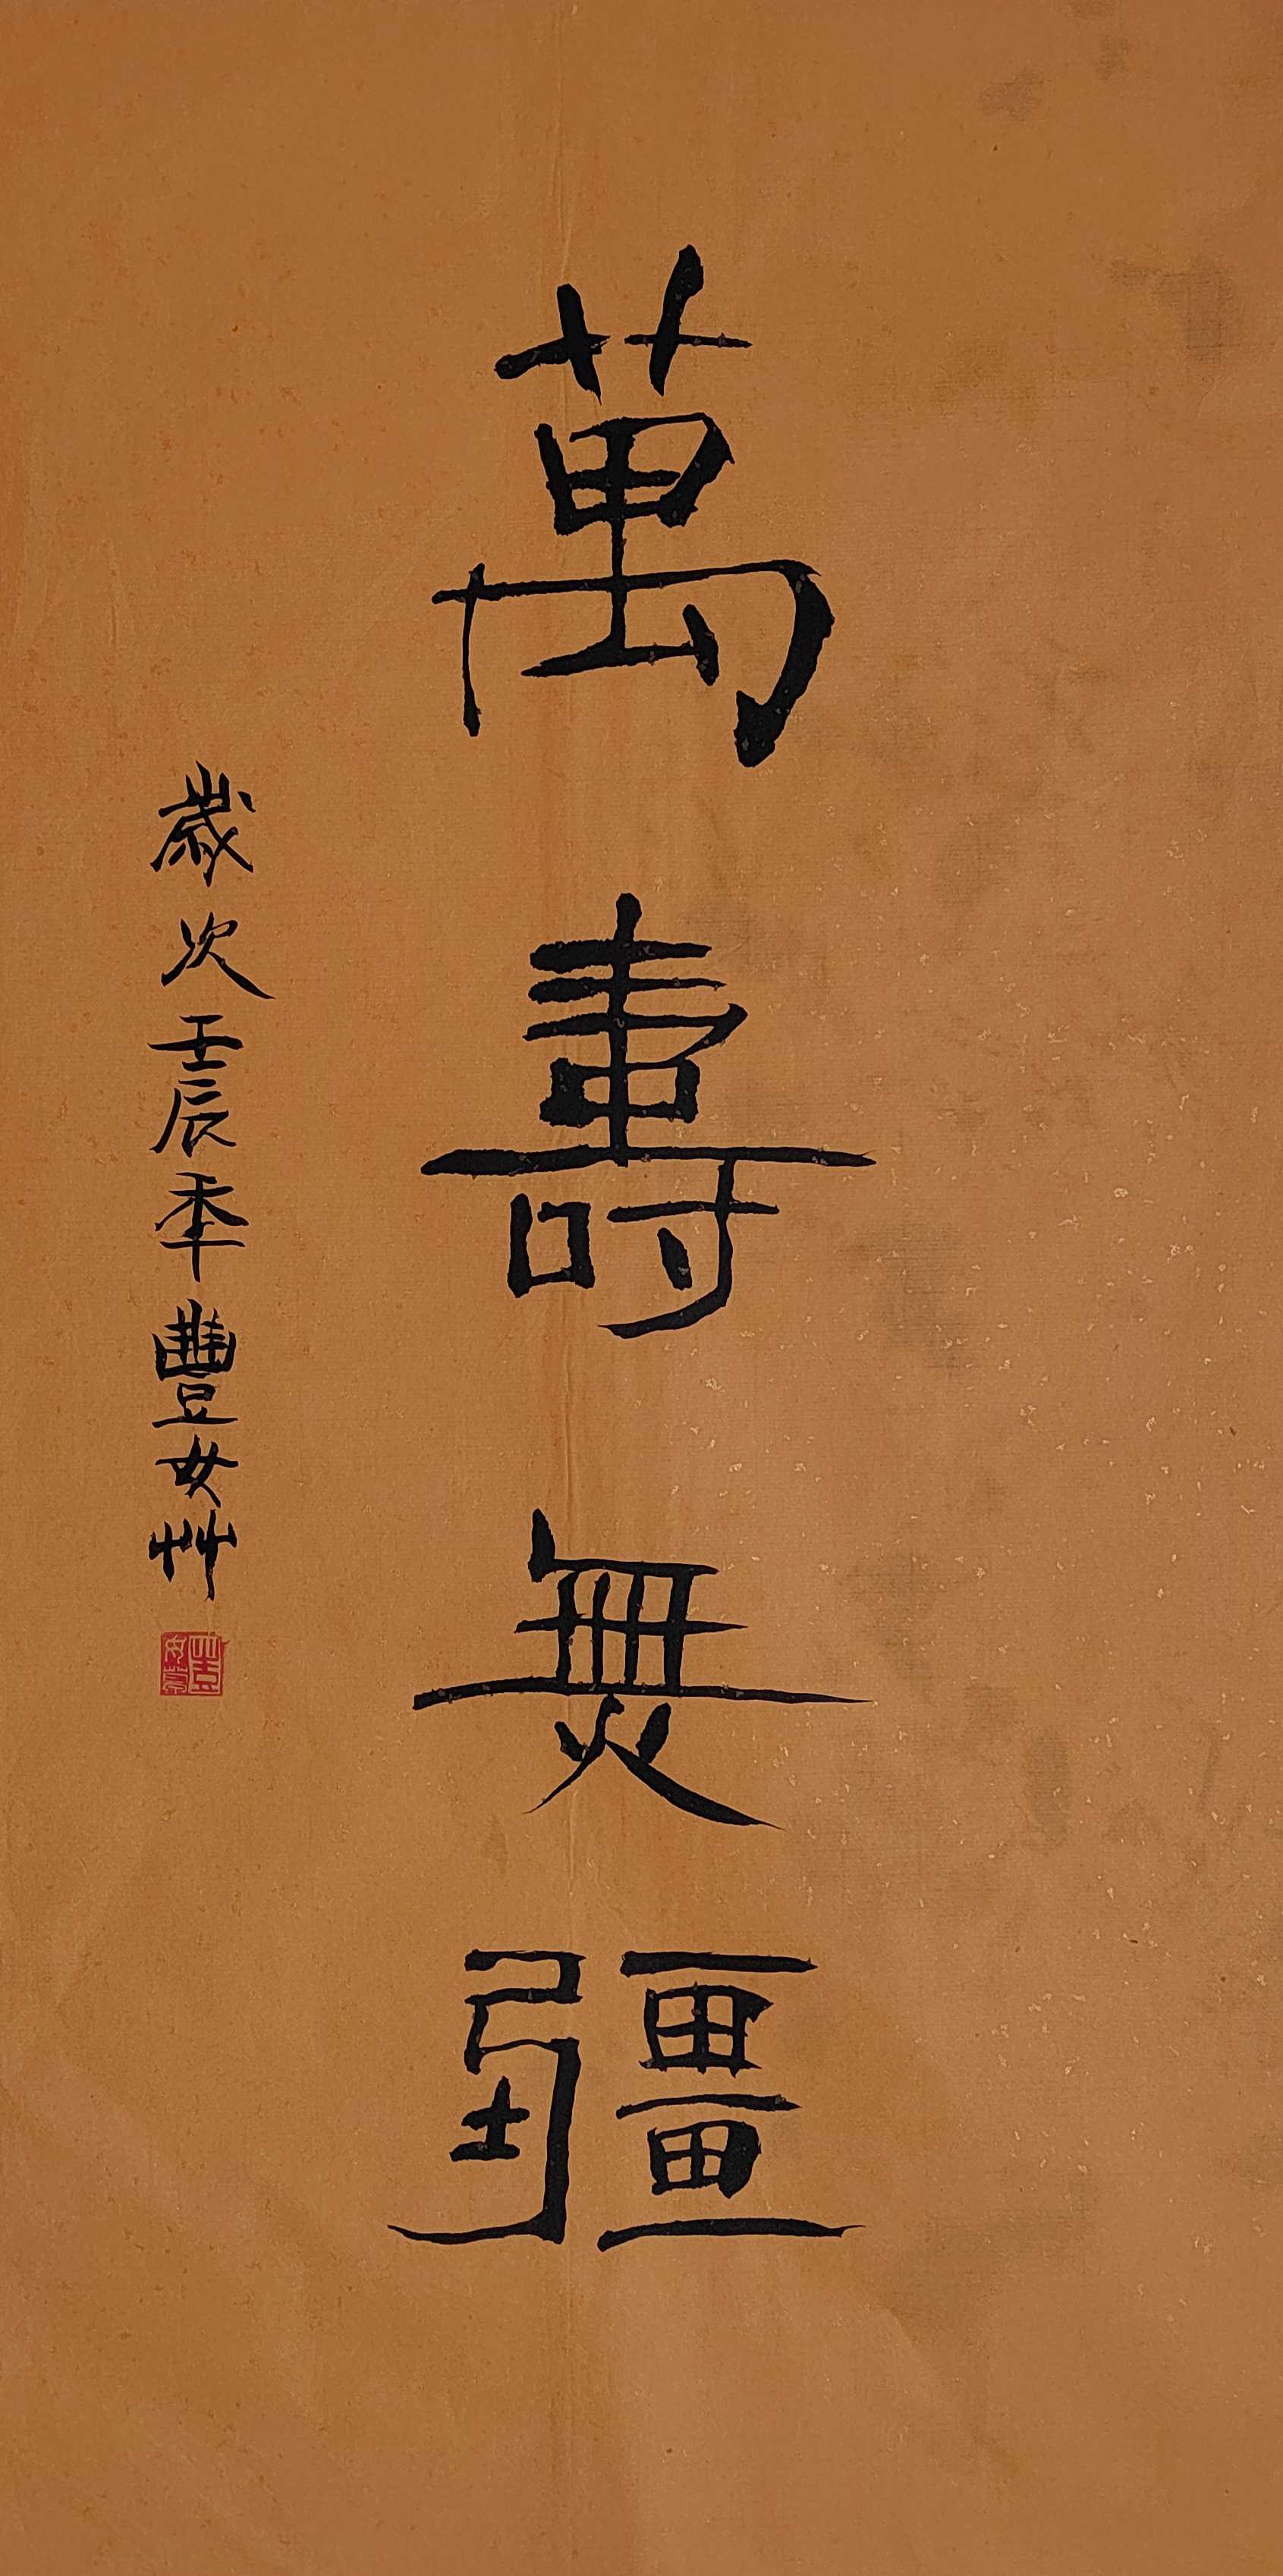 萬壽無疆
歲次壬辰年豐女艸